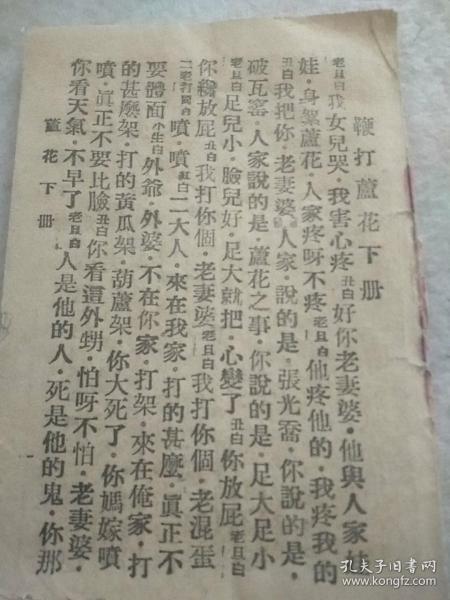 鞭打蘆花下册
老旦白我女兒哭·我害心疼丑白好你老妻婆·他與人家
娃·身絮蘆花·人家疼呀不疼老旦白他疼他的·我疼我的
丑白我把你·老妻婆·人家·說的是·張光喬·你說的是·
破瓦窰·人家說的是·蘆花之事·你說的是·足大足小
老旦白足兒小·臉兒好·足大就把·心變了丑白你放屁老旦白
你纔放屁丑白我打你個·老妻婆老旦白我打你個·老混蛋
二老打鬧介嘖·嘖紅白二大人·來在我家·打的甚麼·眞正不
要體面小生白外爺·外婆·不在你家·打架·來在俺家·打
的甚麼架·打的黃瓜架·葫蘆架·你大死了·你媽嫁嘖
嘖·眞正不要比臉丑白你看這外甥·怕呀不怕·老妻婆·
你看天氣·不早了老旦白人是他的人·死是他的鬼·你那
蘆花下册
孔夫子旧书网
book.kongfz.com